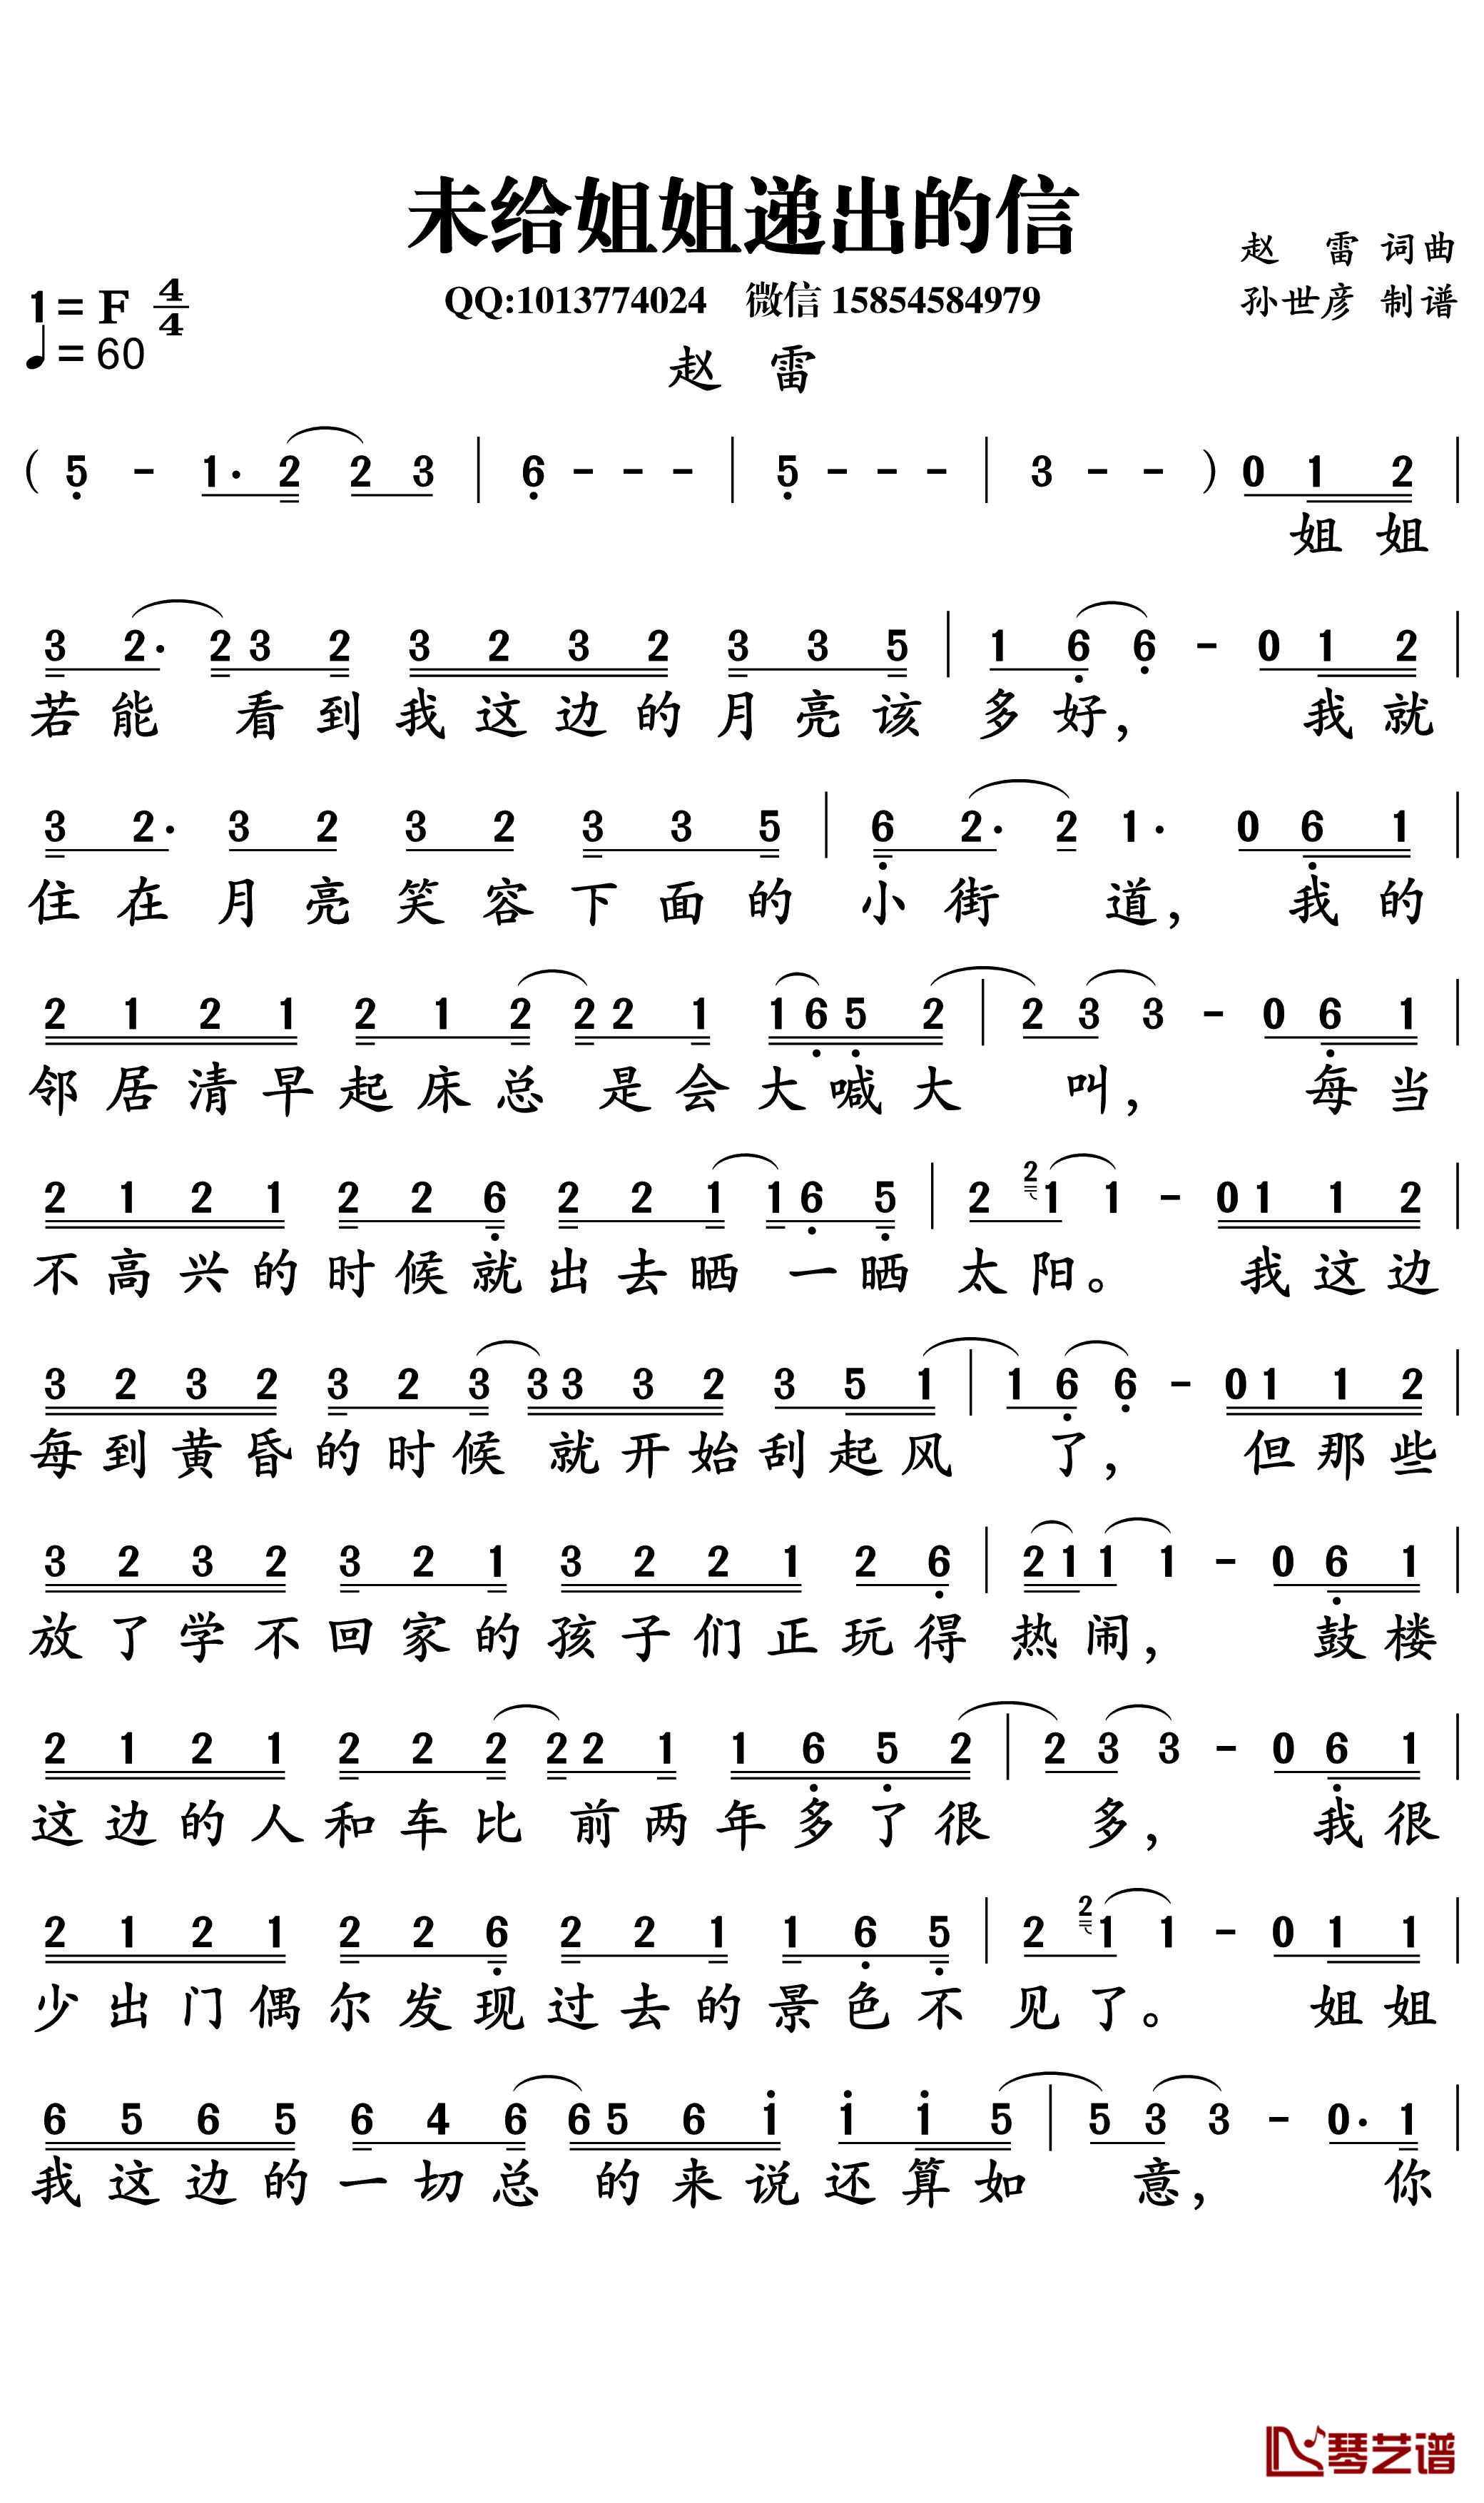 未给姐姐递出的信
赵 雷 词曲
1=F 4/4
QQ:1013774024 微信 15854584979
孙世彦 制谱
♩=60
赵 雷
( 5 - 1· 2 2 3 | 6 - - - | 5 - - - | 3 - - ) 0 1 2 |
姐 姐
3 2· 2 3 2 3 2 3 2 3 3 5 | 1 6 6 - 0 1 2 |
若 能 看 到 我 这 边 的 月 亮 该 多 好， 我 就
3 2· 3 2 3 2 3 3 5 | 6 2· 2 1· 0 6 1 |
住 在 月 亮 笑 容 下 面 的 小 街 道， 我 的
2 1 2 1 2 1 2 2 2 1 1 6 5 2 | 2 3 3 - 0 6 1 |
邻 居 清 早 起 床 总 是 会 大 喊 大 叫， 每 当
2 1 2 1 2 2 6 2 2 1 1 6 5 | 2 2 1 1 - 0 1 1 2 |
不 高 兴 的 时 候 就 出 去 晒 一 晒 太 阳。 我 这 边
3 2 3 2 3 2 3 3 3 3 2 3 5 1 | 1 6 6 - 0 1 1 2 |
每 到 黄 昏 的 时 候 就 开 始 刮 起 风 了， 但 那 些
3 2 3 2 3 2 1 3 2 2 1 2 6 | 2 1 1 1 - 0 6 1 |
放 了 学 不 回 家 的 孩 子 们 正 玩 得 热 闹， 鼓 楼
2 1 2 1 2 2 2 2 2 1 1 6 5 2 | 2 3 3 - 0 6 1 |
这 边 的 人 和 车 比 前 两 年 多 了 很 多， 我 很
2 1 2 1 2 2 6 2 2 1 1 6 5 | 2 2 1 1 - 0 1 1 |
少 出 门 偶 尔 发 现 过 去 的 景 色 不 见 了。 姐 姐
6 5 6 5 6 4 6 6 5 6 i i i 5 | 5 3 3 - 0· 1 |
我 这 边 的 一 切 总 的 来 说 还 算 如 意， 你
琴艺谱